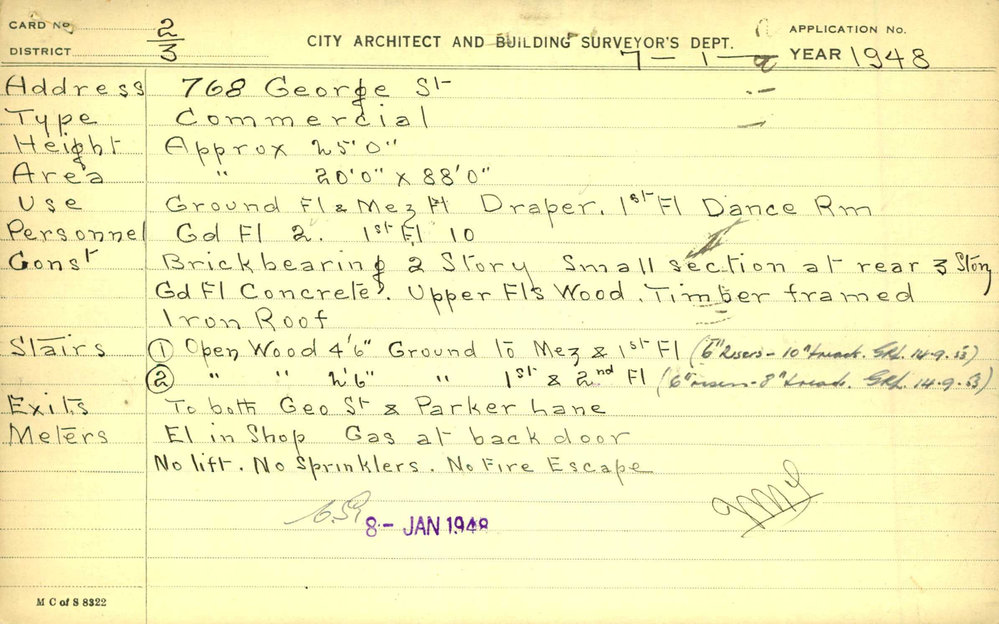 CARD No. 2/3
DISTRICT
CITY ARCHITECT AND BUILDING SURVEYOR'S DEPT.
APPLICATION No.
7 - 1 - YEAR 1948
Address 768 George St
Type Commercial
Height Approx 25'0"
Area " 20'0" x 88'0"
Use Ground Fl & Mez Fl Draper. 1st Fl Dance Rm
Personnel Gd Fl 2. 1st Fl 10
Const Brickbearing 2 Story Small section at rear 3 Story
Gd Fl Concrete. Upper Fls Wood. Timber framed
Iron Roof
Stairs ① Open Wood 4'6" Ground to Mez & 1st Fl (6" risers - 10" treads. GRL. 14-9-53)
② " " 2'6" " 1st & 2nd Fl (6" risers - 8" treads. GRL. 14-9-53)
Exits To both Geo St & Parker Lane
Meters El in Shop Gas at back door
No lift. No Sprinklers. No Fire Escape
8 - JAN 1948
M C of S 8322